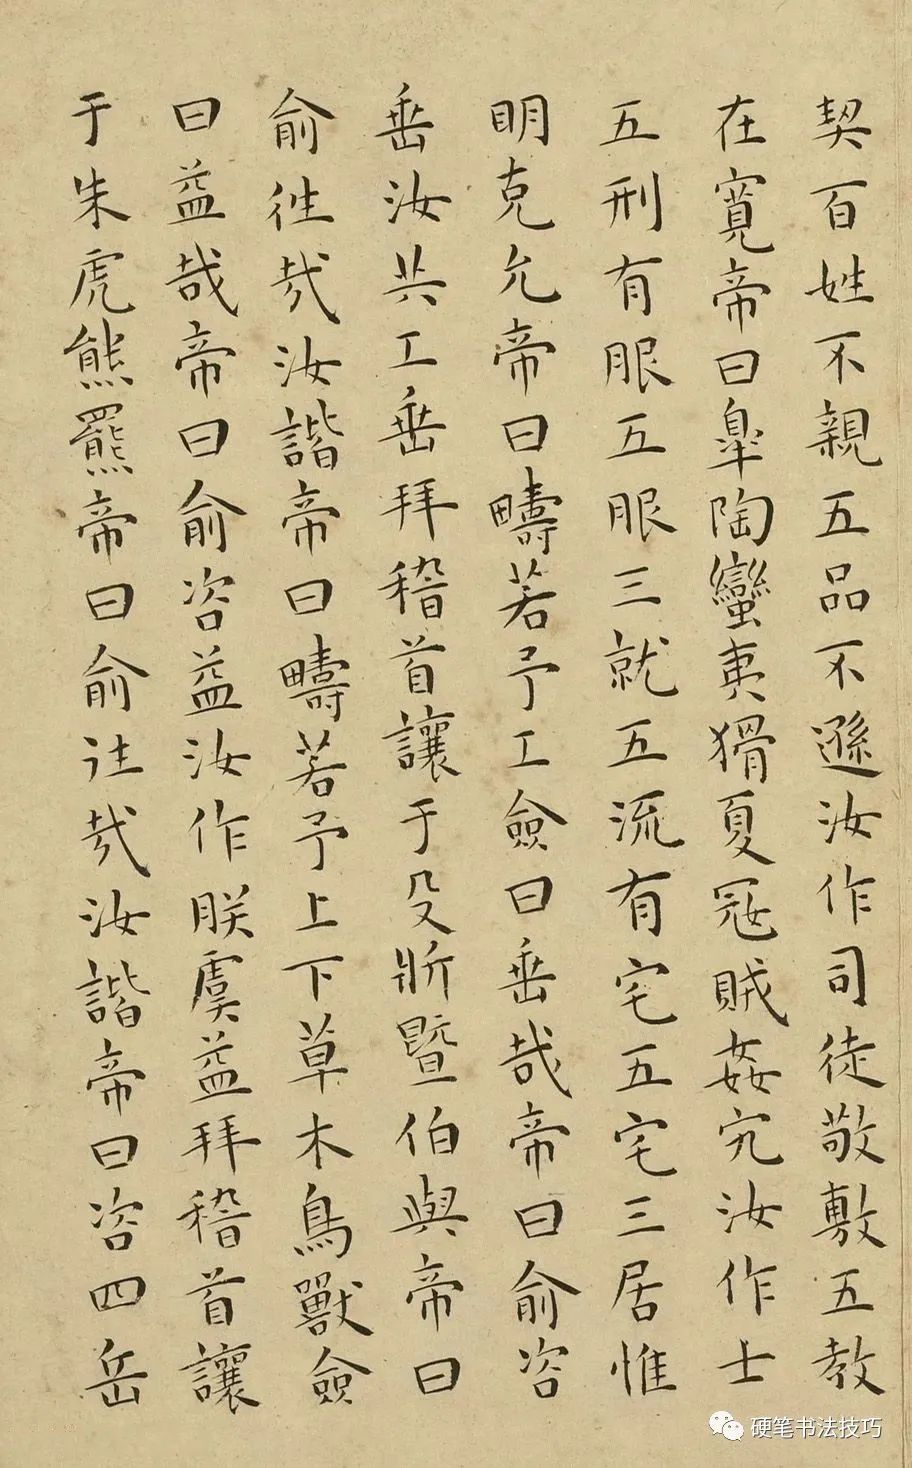 契百姓不親五品不遜汝作司徒敬敷五教
在寬帝曰臯陶蠻夷猾夏冦賊姦宄汝作士
五刑有服五服三就五流有宅五宅三居惟
明克允帝曰疇若予工僉曰垂哉帝曰俞咨
垂汝共工垂拜稽首讓于殳斨暨伯與帝曰
俞往哉汝諧帝曰疇若予上下草木鳥獸僉
曰益哉帝曰俞咨益汝作朕虞益拜稽首讓
于朱虎熊羆帝曰俞往哉汝諧帝曰咨四岳
硬笔书法技巧